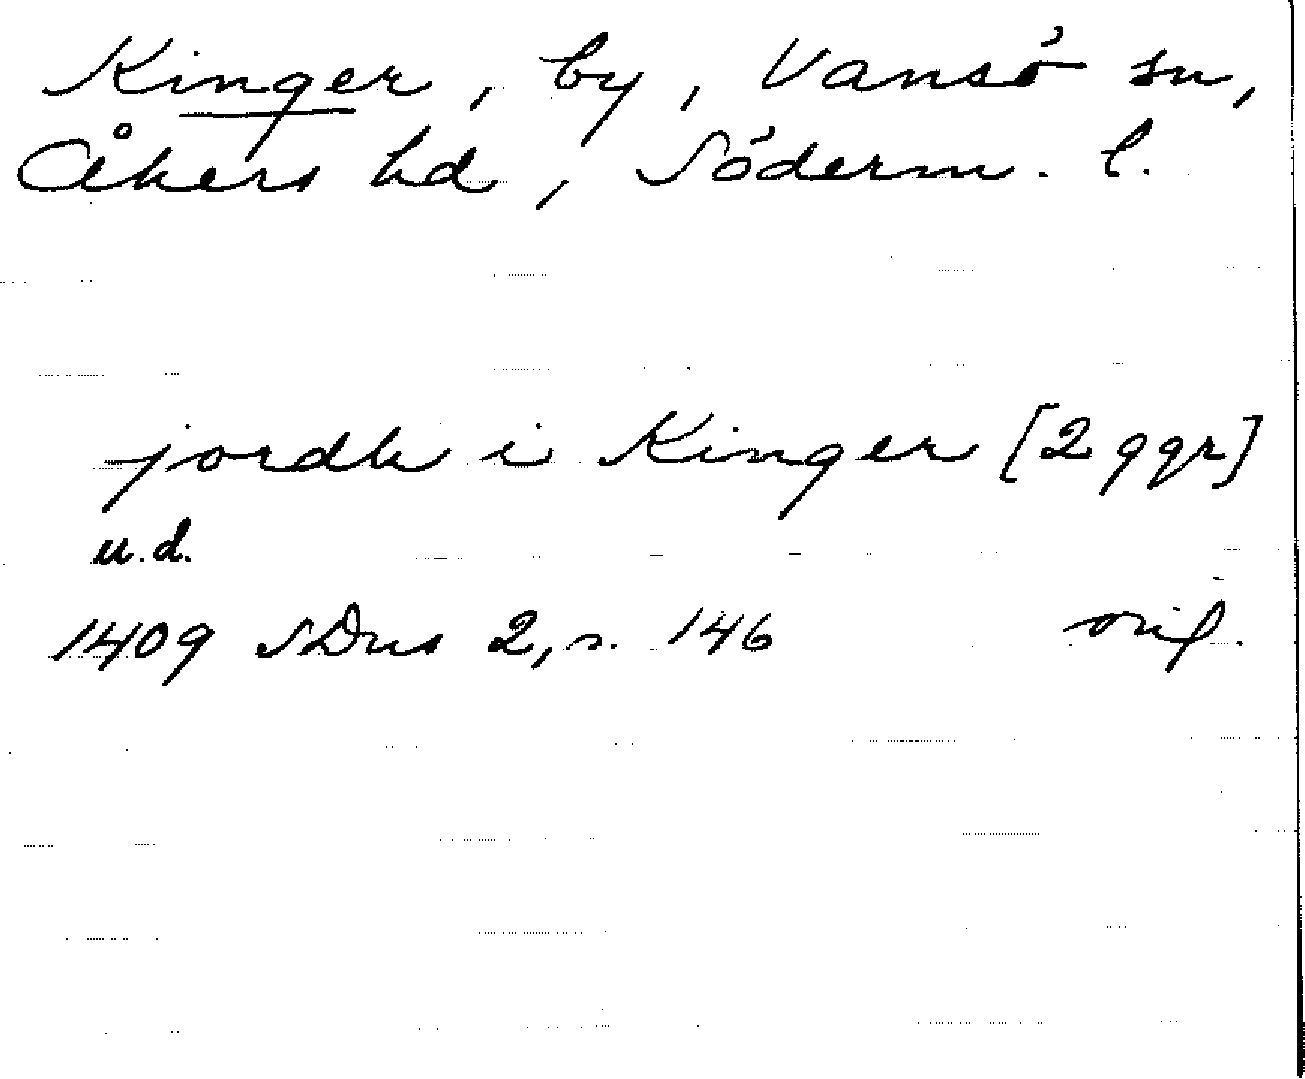 Kinger, by, Vansö sn,
Åkers hd, Söderm. l.
jordh i Kinger [2 ggr]
u.d.
1409 SDns 2, s. 146 orig.